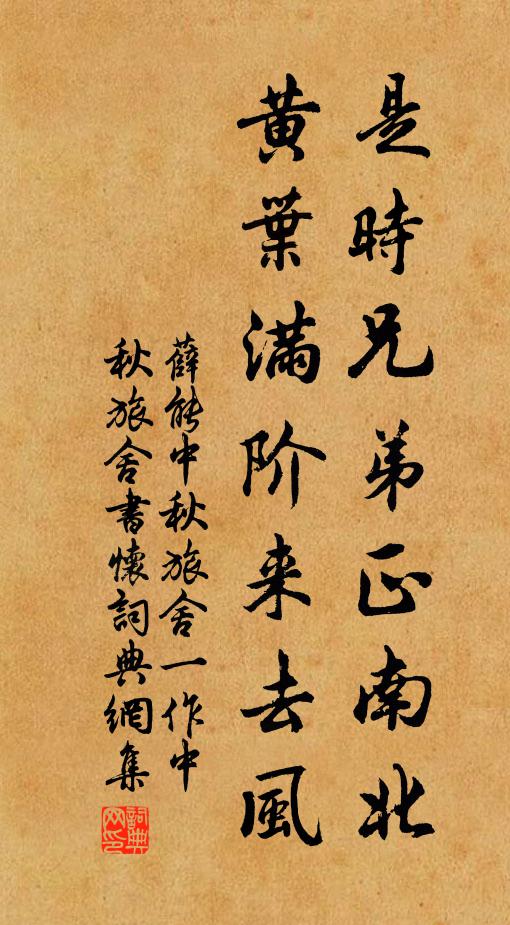 是時兄弟正南北
黄葉满阶来去風
薛能中秋旅舍一作中
秋旅舍書懷詞典網集
詞典
网印